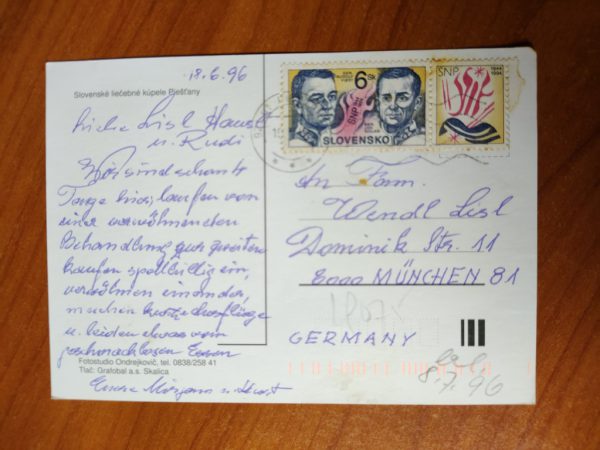 18.6.96
Slovenské liečebné kúpele Piešťany
Liebe Lisl
u. Rudi
Wir sind schon
Tage hier, laufen von
einer verwöhnenden
Behandlung zur zweiten
kaufen spottbillig ein,
verwöhnen einander,
machen
u. leiden etwas vom
geschmacklosen Essen
Fotostudio Ondrejkovič, tel. 0838/258 41
Tlač: Grafobal a.s. Skalica
Eure
6 Sk
SNP
SLOVENSKO
SNP
1944
1994
An Fam.
Wendl Lisl
Dominik Str. 11
8000 MÜNCHEN 81
GERMANY
8.7.96